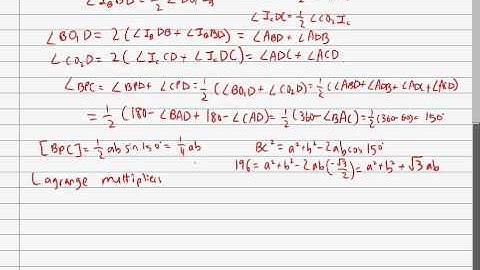 ∠I_CDC = 1/2 ∠CO₂I_C
∠BO₁D = 2(∠I_BDB + ∠I_BBD) = ∠ABD + ∠ADB
∠CO₂D = 2(∠I_CCD + ∠I_CDC) = ∠ADC + ∠ACD
∠BPC = ∠BPD + ∠CPD = 1/2(∠BO₁D + ∠CO₂D) = 1/2(∠ABD + ∠ADB + ∠ADC + ∠ACD)
= 1/2(180 - ∠BAD + 180 - ∠CAD) = 1/2(360 - ∠BAC) = 1/2(360 - 60) = 150°
[BPC] = 1/2 ab sin 150° = 1/4 ab BC² = a² + b² - 2ab cos 150°
196 = a² + b² - 2ab(-√3/2) = a² + b² + √3 ab
Lagrange multipliers